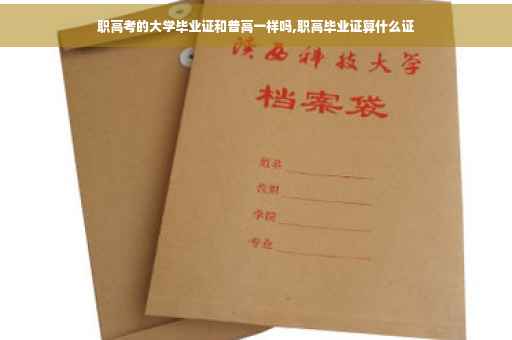 职高考的大学毕业证和普高一样吗,职高毕业证算什么证
陕西科技大学
档案袋
姓名
学院
专业